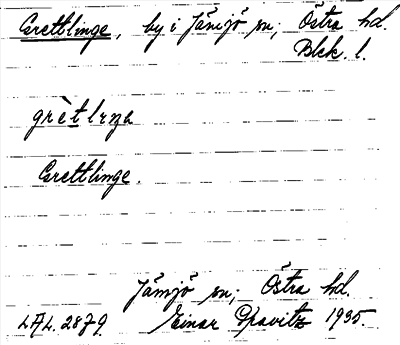 Grettlinge, by i Jämjö sn; Östra hd.
Blek. l.
grètlıŋa
Grettlinge.
Jämjö sn; Östra hd.
LAL. 2879. Einar 1935.